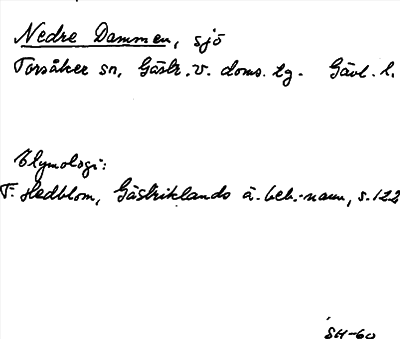 Nedre Dammen, sjö
Torsåker sn, Gästr. v. doms. tg. Gävl. l.
Etymologi:
F. Hedblom, Gästriklands ä. beb.-namn, s. 122
SH-60